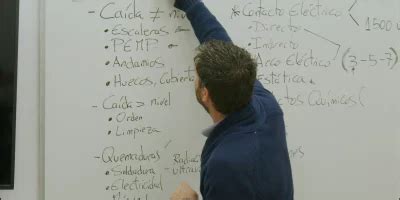 - Caída ≠ nivel
• Escaleras
• PEMP
• Andamios
• Huecos, Cubierta
- Caída > nivel
• Orden
• Limpieza
- Quemaduras
• Soldadura
• Electricidad
Radia
ultrav
* Contacto Eléctrico
• Directo
• Indirecto
• Arco Eléctrico (3-5-7)
Estática
ctos Químicos (
1500